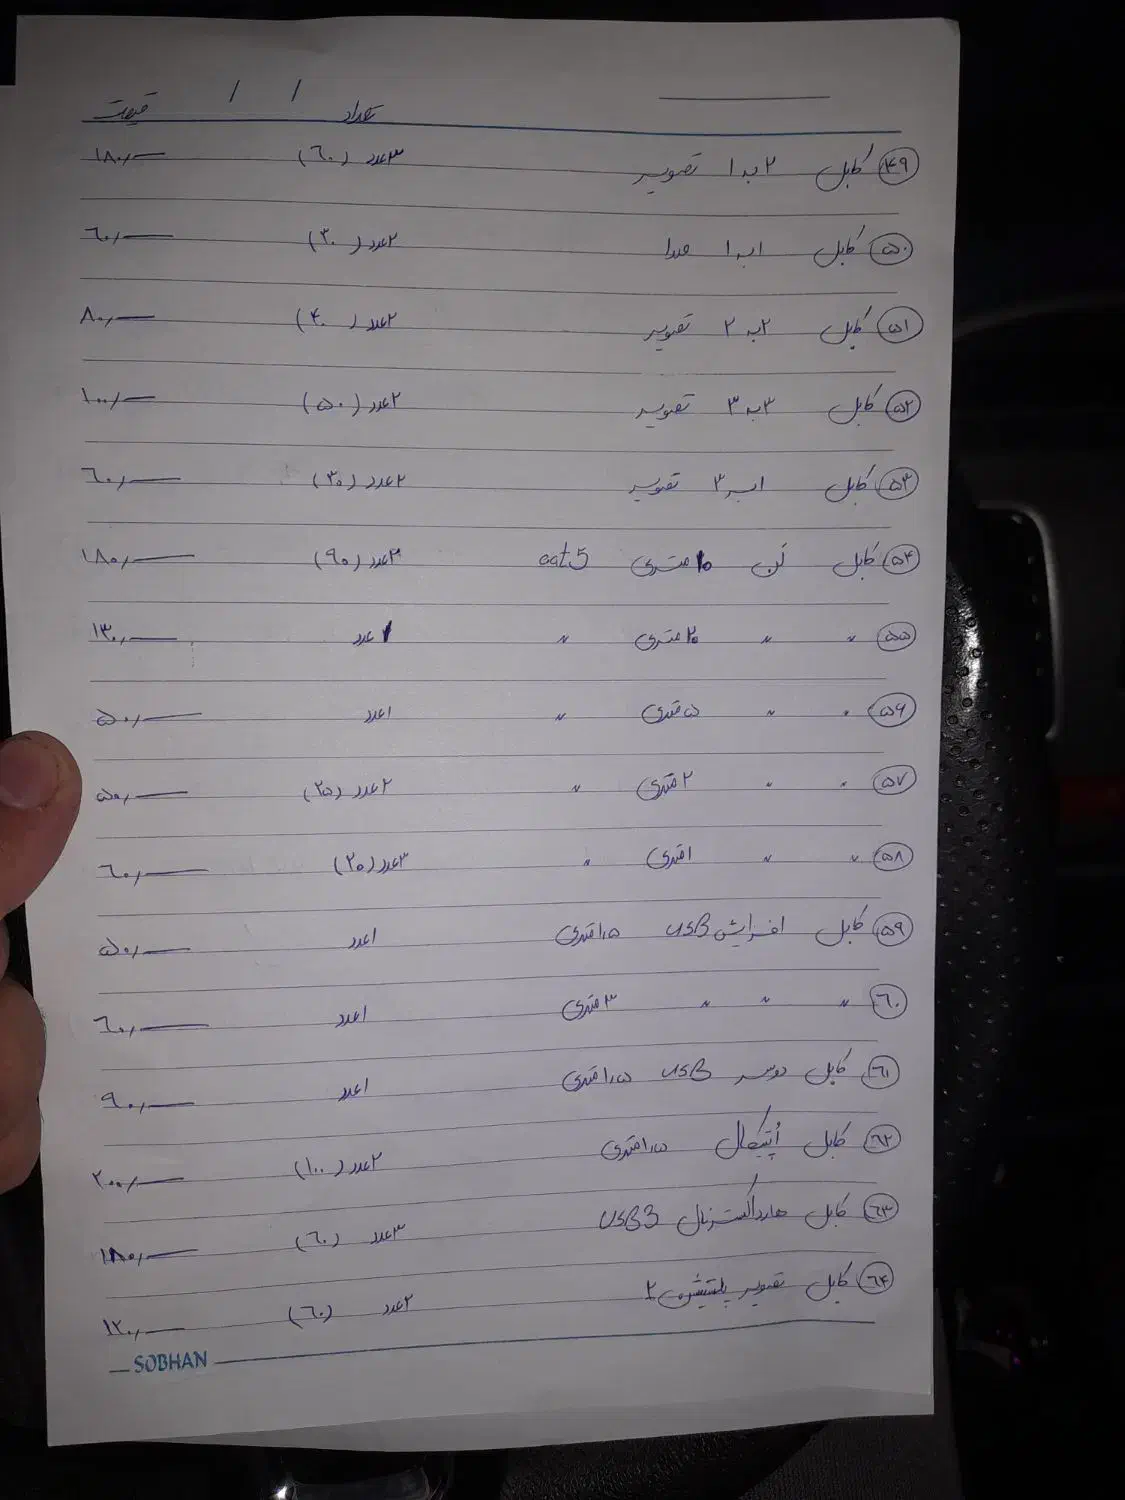 تعداد / / قیمت
۴۹ کابل ۲ به ۱ تصویر ۳ عدد (۶۰) ۱۸۰/—
۵۰ کابل ۱ به ۱ صدا ۲ عدد (۳۰) ۶۰/—
۵۱ کابل ۲ به ۲ تصویر ۲ عدد (۴۰) ۸۰/—
۵۲ کابل ۳ به ۳ تصویر ۲ عدد (۵۰) ۱۰۰/—
۵۳ کابل ۱ به ۳ تصویر ۲ عدد (۳۰) ۶۰/—
۵۴ کابل لن ۱۰ متری cat5 ۲ عدد (۹۰) ۱۸۰/—
۵۵ 〃 〃 ۲۰ متری 〃 ۱ عدد ۱۳۰/—
۵۶ 〃 〃 ۵ متری 〃 ۱ عدد ۵۰/—
۵۷ 〃 〃 ۲ متری 〃 ۲ عدد (۲۵) ۵۰/—
۵۸ 〃 〃 ۱ متری 〃 ۳ عدد (۲۰) ۶۰/—
۵۹ کابل افزایش USB ۱٫۵ متری ۱ عدد ۵۰/—
۶۰ 〃 〃 〃 ۳ متری ۱ عدد ۶۰/—
۶۱ کابل دوسر USB ۱٫۵ متری ۱ عدد ۹۰/—
۶۲ کابل اُپتیکال ۱٫۵ متری ۲ عدد (۱۰۰) ۲۰۰/—
۶۳ کابل هارد اکسترنال USB3 ۳ عدد (۶۰) ۱۸۰/—
۶۴ کابل تصویر پلتیشن ۲ ۲ عدد (۶۰) ۱۲۰/—
SOBHAN